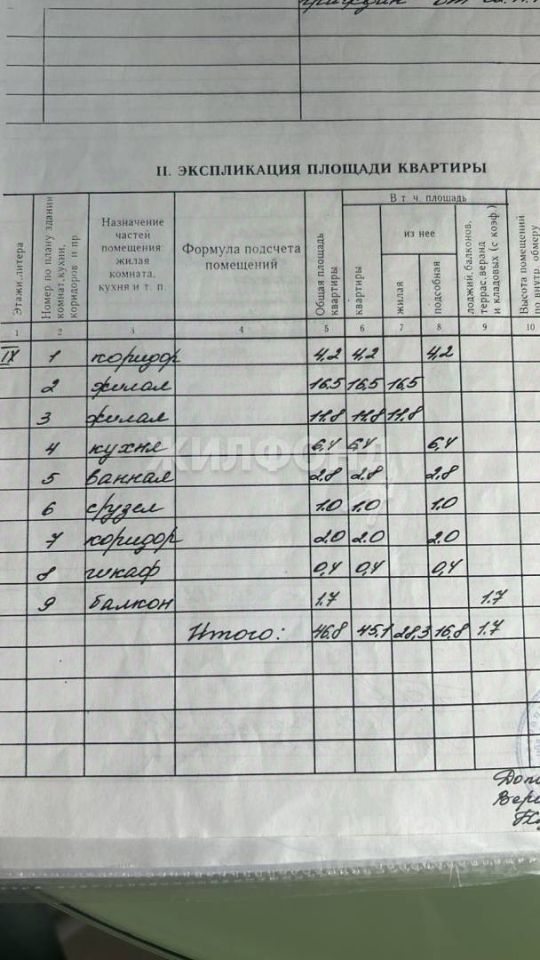 II. ЭКСПЛИКАЦИЯ ПЛОЩАДИ КВАРТИРЫ
Этажи, литера
Номер по плану здания комнат, кухни, коридоров и пр
Назначение частей помещения: жилая комната, кухня и т. п.
Формула подсчета помещений
Общая площадь квартиры
В т ч. площадь
квартиры
из нее
жилая
подсобная
лоджий, балконов, террас, веранд и кладовых (с коэф)
Высота помещений по внутр. обмеру
1 2 3 4 5 6 7 8 9 10
IX 1 коридор 4,2 4,2 4,2
2 жилая 16,5 16,5 16,5
3 жилая 11,8 11,8 11,8
4 кухня 6,4 6,4 6,4
5 ванная 2,8 2,8 2,8
6 с/узел 1.0 1.0 1.0
7 коридор 2.0 2.0 2.0
8 шкаф 0,4 0,4 0,4
9 балкон 1.7 1.7
Итого: 46,8 45,1 28,3 16,8 1.7
ЖИЛФОНД